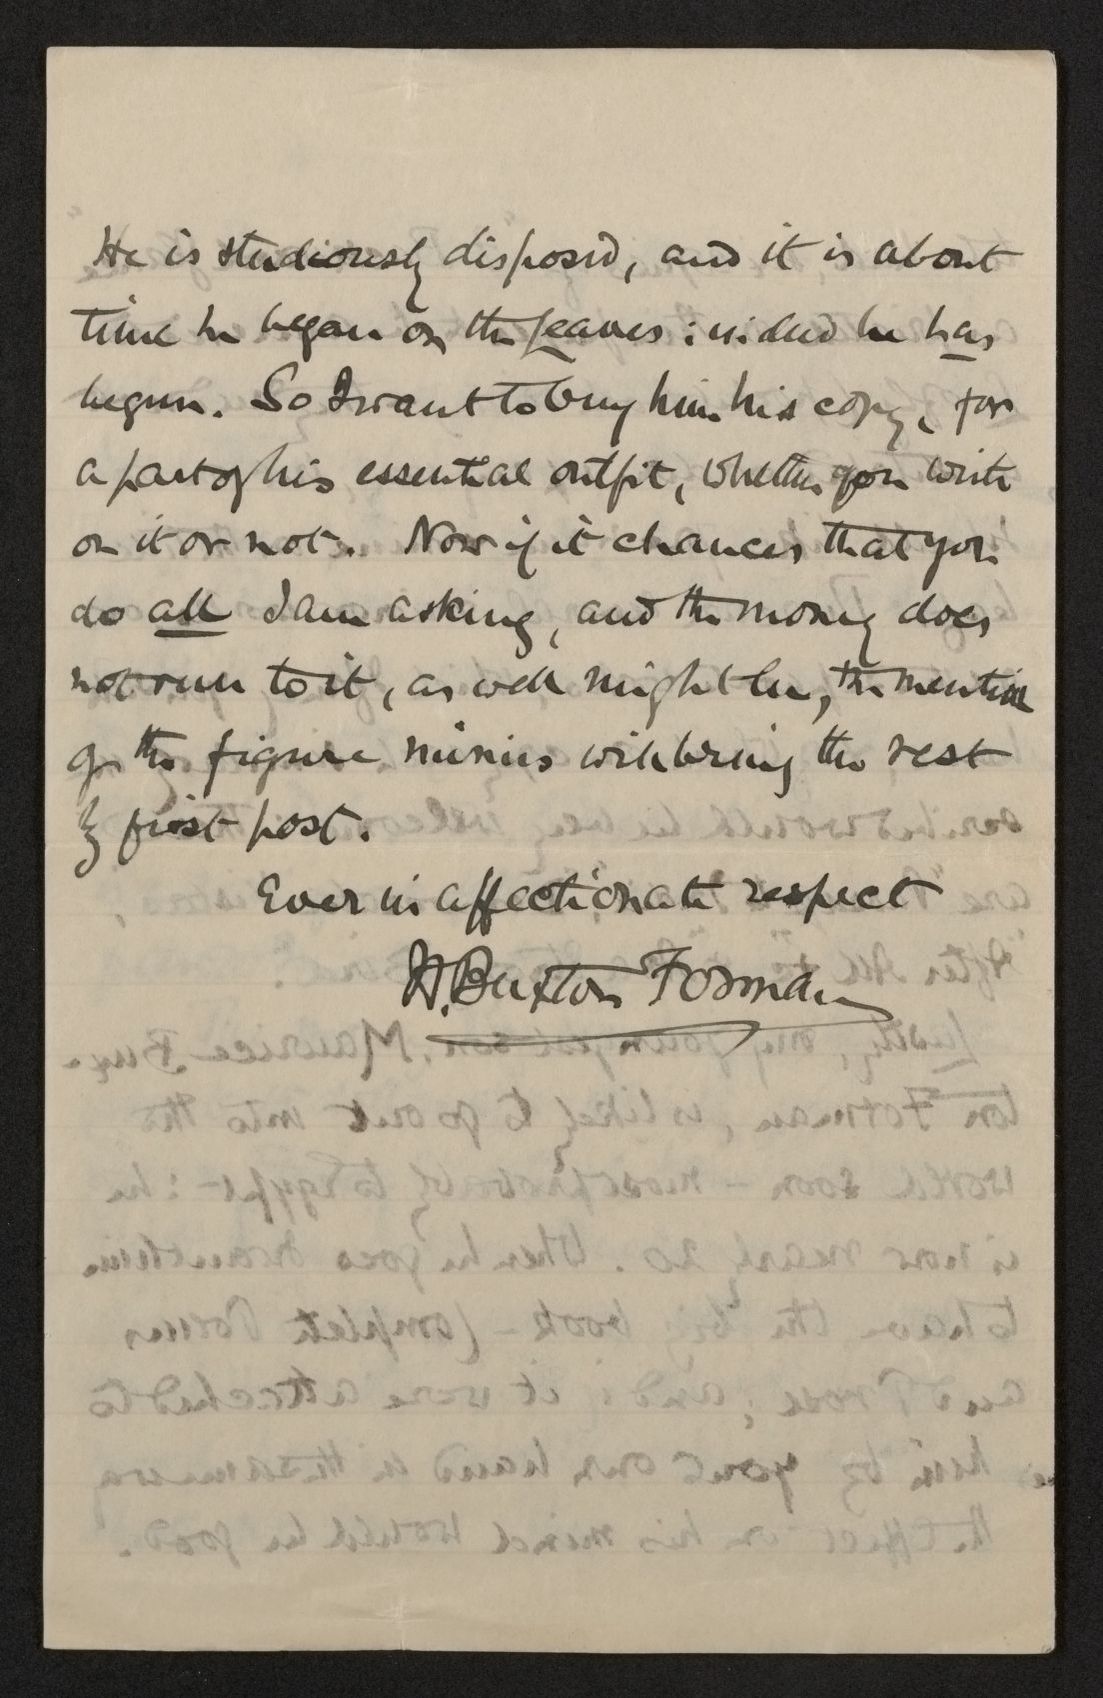 He is studiously disposed, and it is about
time he began on the Leaves : indeed he has
begun. So I want to buy him his copy, for
a part of his essential outfit, whether you write
on it or not. Now if it chances that you
do all I am asking, and the money does
not run to it, as well might be, the mention
of the figure minus will bring the rest
by first post.
Ever in affectionate respect
H. Buxton Forman